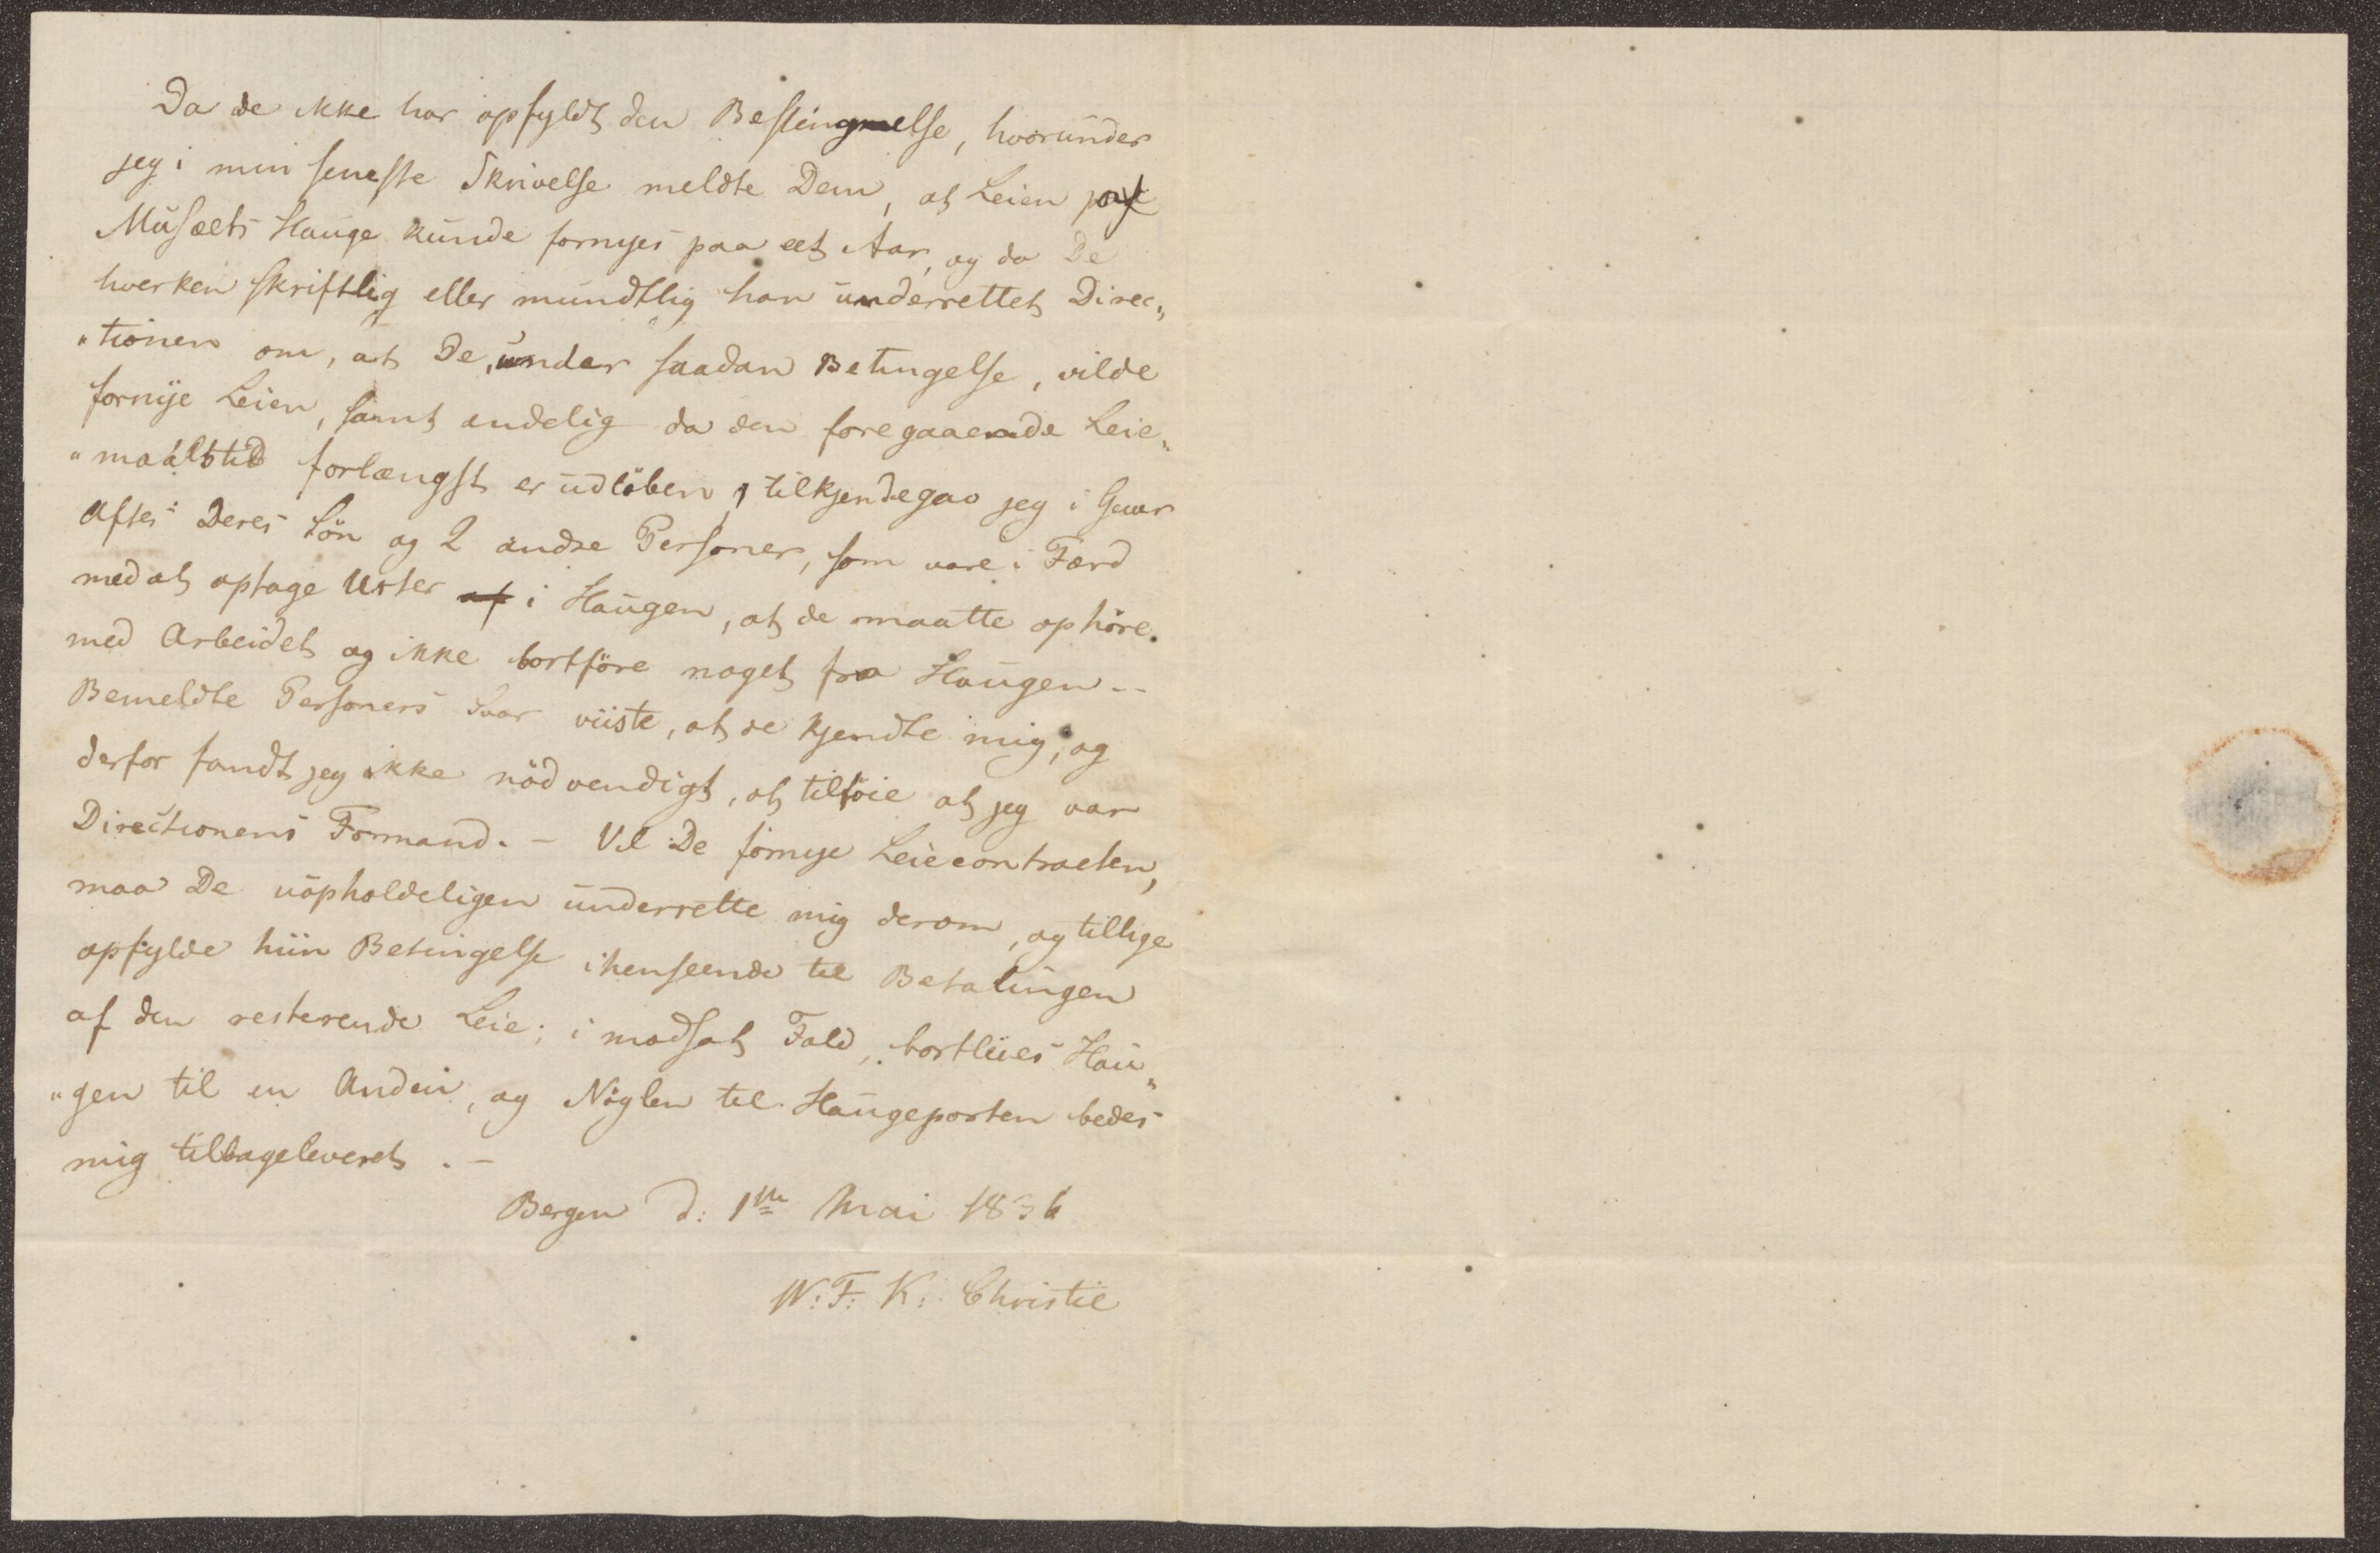 Da de ikke har opfyldt den Bestingmelse, hvorunder
jeg i min seneste Skrivelse meldte Dem, at Leien af
Musæets Hauge kunde fornyes paa eet Aar, og da De
hverken skriftlig eller mundtlig har underrettet Direc„
„tionen om, at De, under saadan Betingelse, vilde
fornye Leien, samt endelig da den foregaaende Leie„
„maalstid forlængst er udløben, tilkjendegav jeg i Gaar
Aftes Deres Søn og 2 andre Personer, som vare i Færd
med at optage Urter af i Haugen, at de maatte ophöre
med Arbeidet og ikke bortföre noget fra Haugen. -
Bemeldte Personers Svar viiste, at de kjendte mig, og
derfor fandt jeg ikke nödvendigt, at tilföie at jeg var
Directionens Formand. - Vil De fornye Leiecontracten,
maa De uopholdeligen underrette mig derom, og tillige
opfylde hiin Betingelse ihenseende til Betalingen
af den resterende Leie; i modsat Fald, bortleies Hau„
„gen til en Anden, og Nöglen til Haugeporten bedes
mig tilbageleveret. -
Bergen d: 1ste Mai 1836
W: F: K: Christie